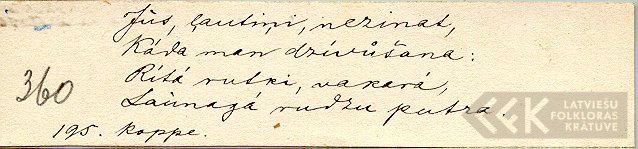 Jūs, ļautiņi, nezinat,
Kāda man dzīvůšana:
Rītā rutki, vakarā,
Launagā rudzu putra.
360
195. Koppe.
LATVIEŠU
FOLKLORAS
KRĀTUVE